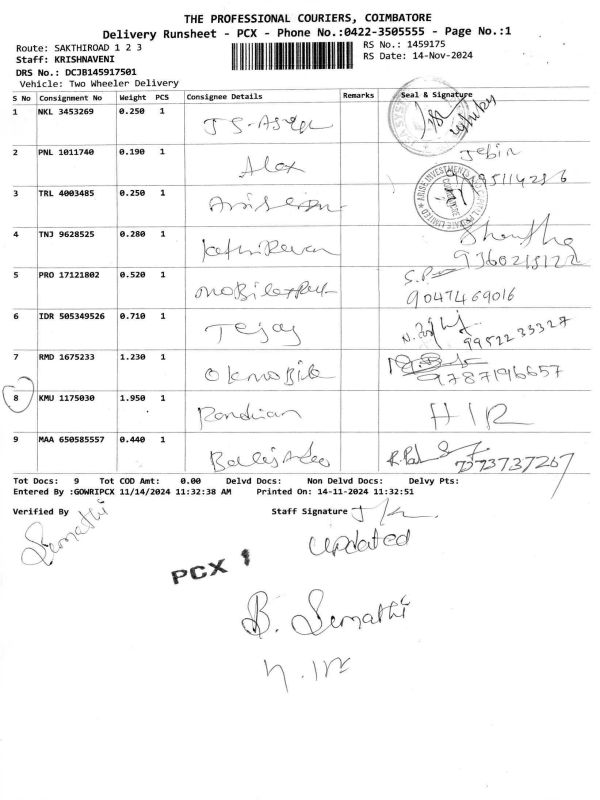 THE PROFESSIONAL COURIERS, COIMBATORE
Delivery Runsheet - PCX - Phone No.:0422-3505555 - Page No.:1
Route: SAKTHIROAD 1 2 3 RS No.: 1459175
Staff: KRISHNAVENI RS Date: 14-Nov-2024
DRS No.: DCJB145917501
Vehicle: Two Wheeler Delivery
S No Consignment No Weight PCS Consignee Details Remarks Seal & Signature
1 NKL 3453269 0.250 1
2 PNL 1011740 0.190 1 Alex Jebin
3 TRL 4003485 0.250 1
4 TNJ 9628525 0.280 1 Kathiravan
5 PRO 17121802 0.520 1 S.P
9047469016
6 IDR 505349526 0.710 1 Tejas 9952233327
7 RMD 1675233 1.230 1 OK mobile 9787196657
8 KMU 1175030 1.950 1 Pandian HIR
9 MAA 650585557 0.440 1 7373737267
Tot Docs: 9 Tot COD Amt: 0.00 Delvd Docs: Non Delvd Docs: Delvy Pts:
Entered By :GOWRIPCX 11/14/2024 11:32:38 AM Printed On: 14-11-2024 11:32:51
Verified By Staff Signature
Sumathi
updated
PCX 1
B. Sumathi